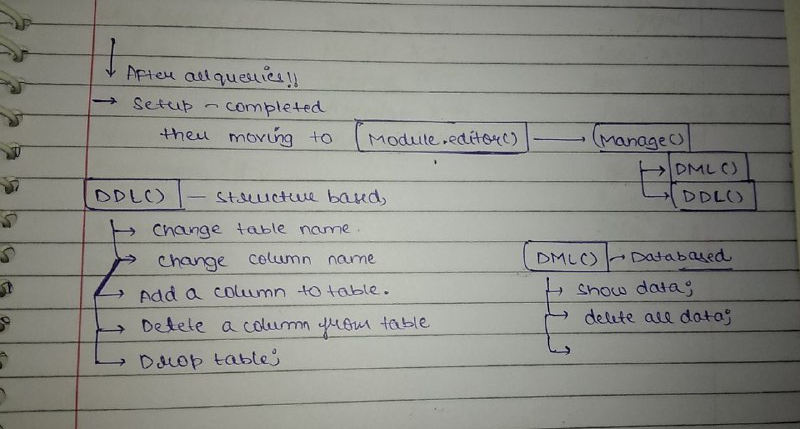 After all queries!!
→ Setup - completed
then moving to Module.editor() → Manage()
→ DML()
→ DDL()
DDL() - structure based,
→ change table name.
→ change column name
→ Add a column to table.
→ Delete a column from table
→ Drop table;
DML() - Databased
→ show data;
→ delete all data;